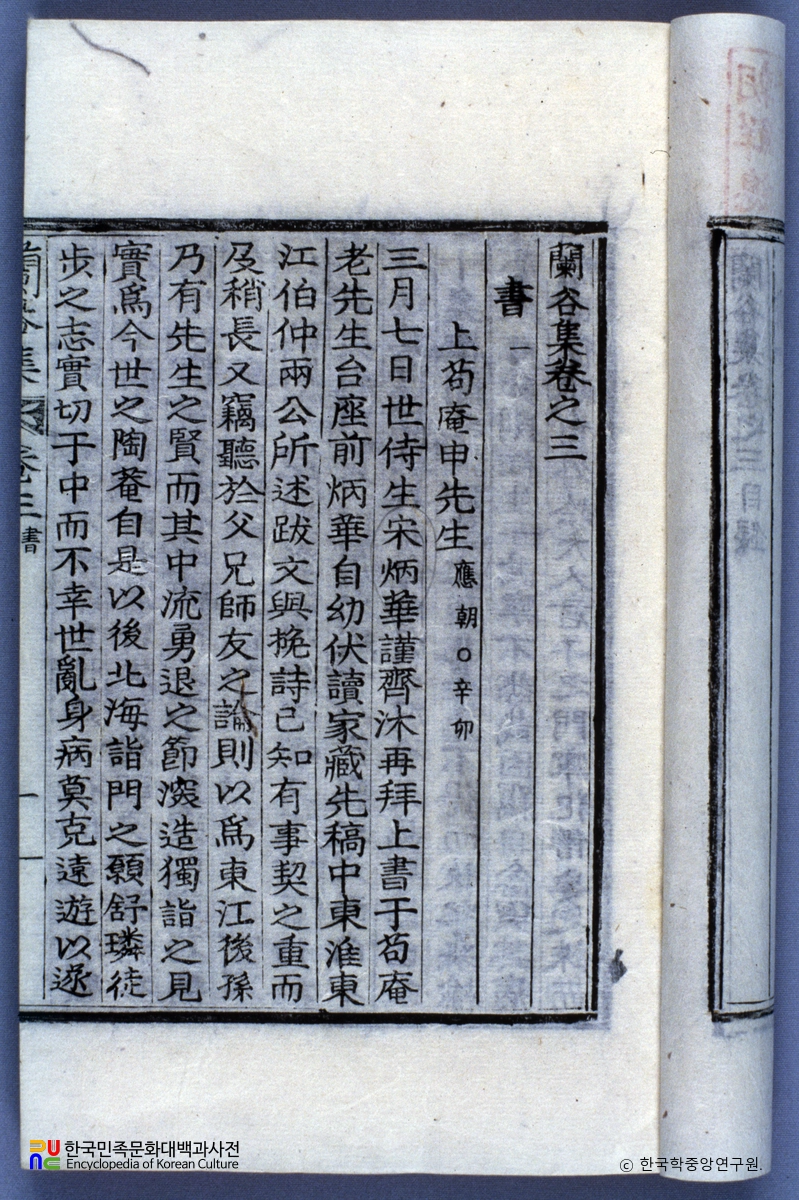 蘭谷集卷之三
書
上苟庵申先生應朝○辛卯
三月七日世侍生宋炳華謹齊沐再拜上書于苟庵
老先生台座前炳華自幼伏讀家藏先稿中東淮東
江伯仲兩公所述跋文與挽詩已知有事契之重而
及稍長又竊聽於父兄師友之論則以爲東江後孫
乃有先生之賢而其中流勇退之節深造獨詣之見
實爲今世之陶菴自是以後北海詣門之願舒璘徒
步之志實切于中而不幸世亂身病莫克遠遊以遂
蘭谷集 卷三 書 一
蘭谷集卷之三目錄
한국민족문화대백과사전
Encyclopedia of Korean Culture
© 한국학중앙연구원.